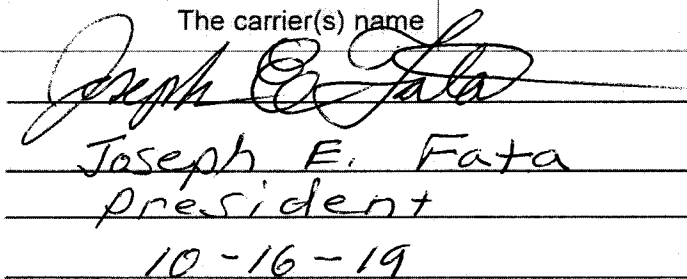 The carrier(s) name
Joseph E Fata
Joseph E. Fata
president
10-16-19